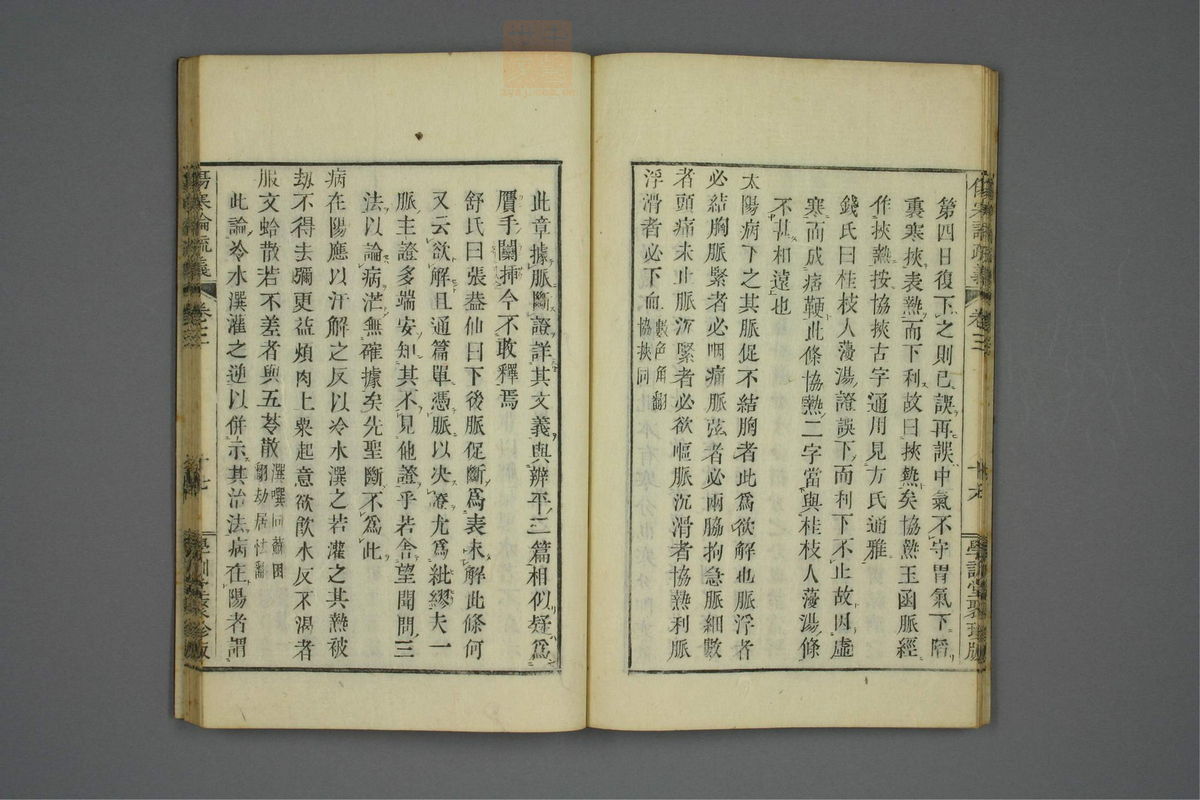 傷寒論疏義 卷三 十七 學訓堂聚珍版
第四日復下之則已誤再誤中氣不守胃氣下陷
裏寒挾表熱而下利故曰挾熱矣協熱玉函脈經
作挾熱按協挾古字通用見方氏通雅
錢氏曰桂枝人參湯證誤下而利下不止故因虛
寒而成痞鞕此條協熱二字當與桂枝人參湯條
不甚相遠也
太陽病下之其脈促不結胸者此爲欲解也脈浮者
必結胸脈緊者必咽痛脈弦者必兩脇拘急脈細數
者頭痛未止脈沉緊者必欲嘔脈沉滑者協熱利脈
浮滑者必下血 數色角翻 協挾同
此章據脈斷證詳其文義與辨平二篇相似疑爲
贋手闌插今不敢釋焉
舒氏曰張蓋仙曰下後脈促斷爲表未解此條何
又云欲解且通篇單憑脈以決證尤爲紕繆夫一
脈主證多端安知其不見他證乎若舍望聞問三
法以論病茫無確據矣先聖斷不爲此
病在陽應以汗解之反以冷水潠之若灌之其熱被
劫不得去彌更益煩肉上粟起意欲飮水反不渴者
服文蛤散若不差者與五苓散 潠噀同蘇困翻 劫居怯翻
此論冷水潠灌之逆以併示其治法病在陽者謂
傷寒論疏義 卷三 十七 學訓堂聚珍版